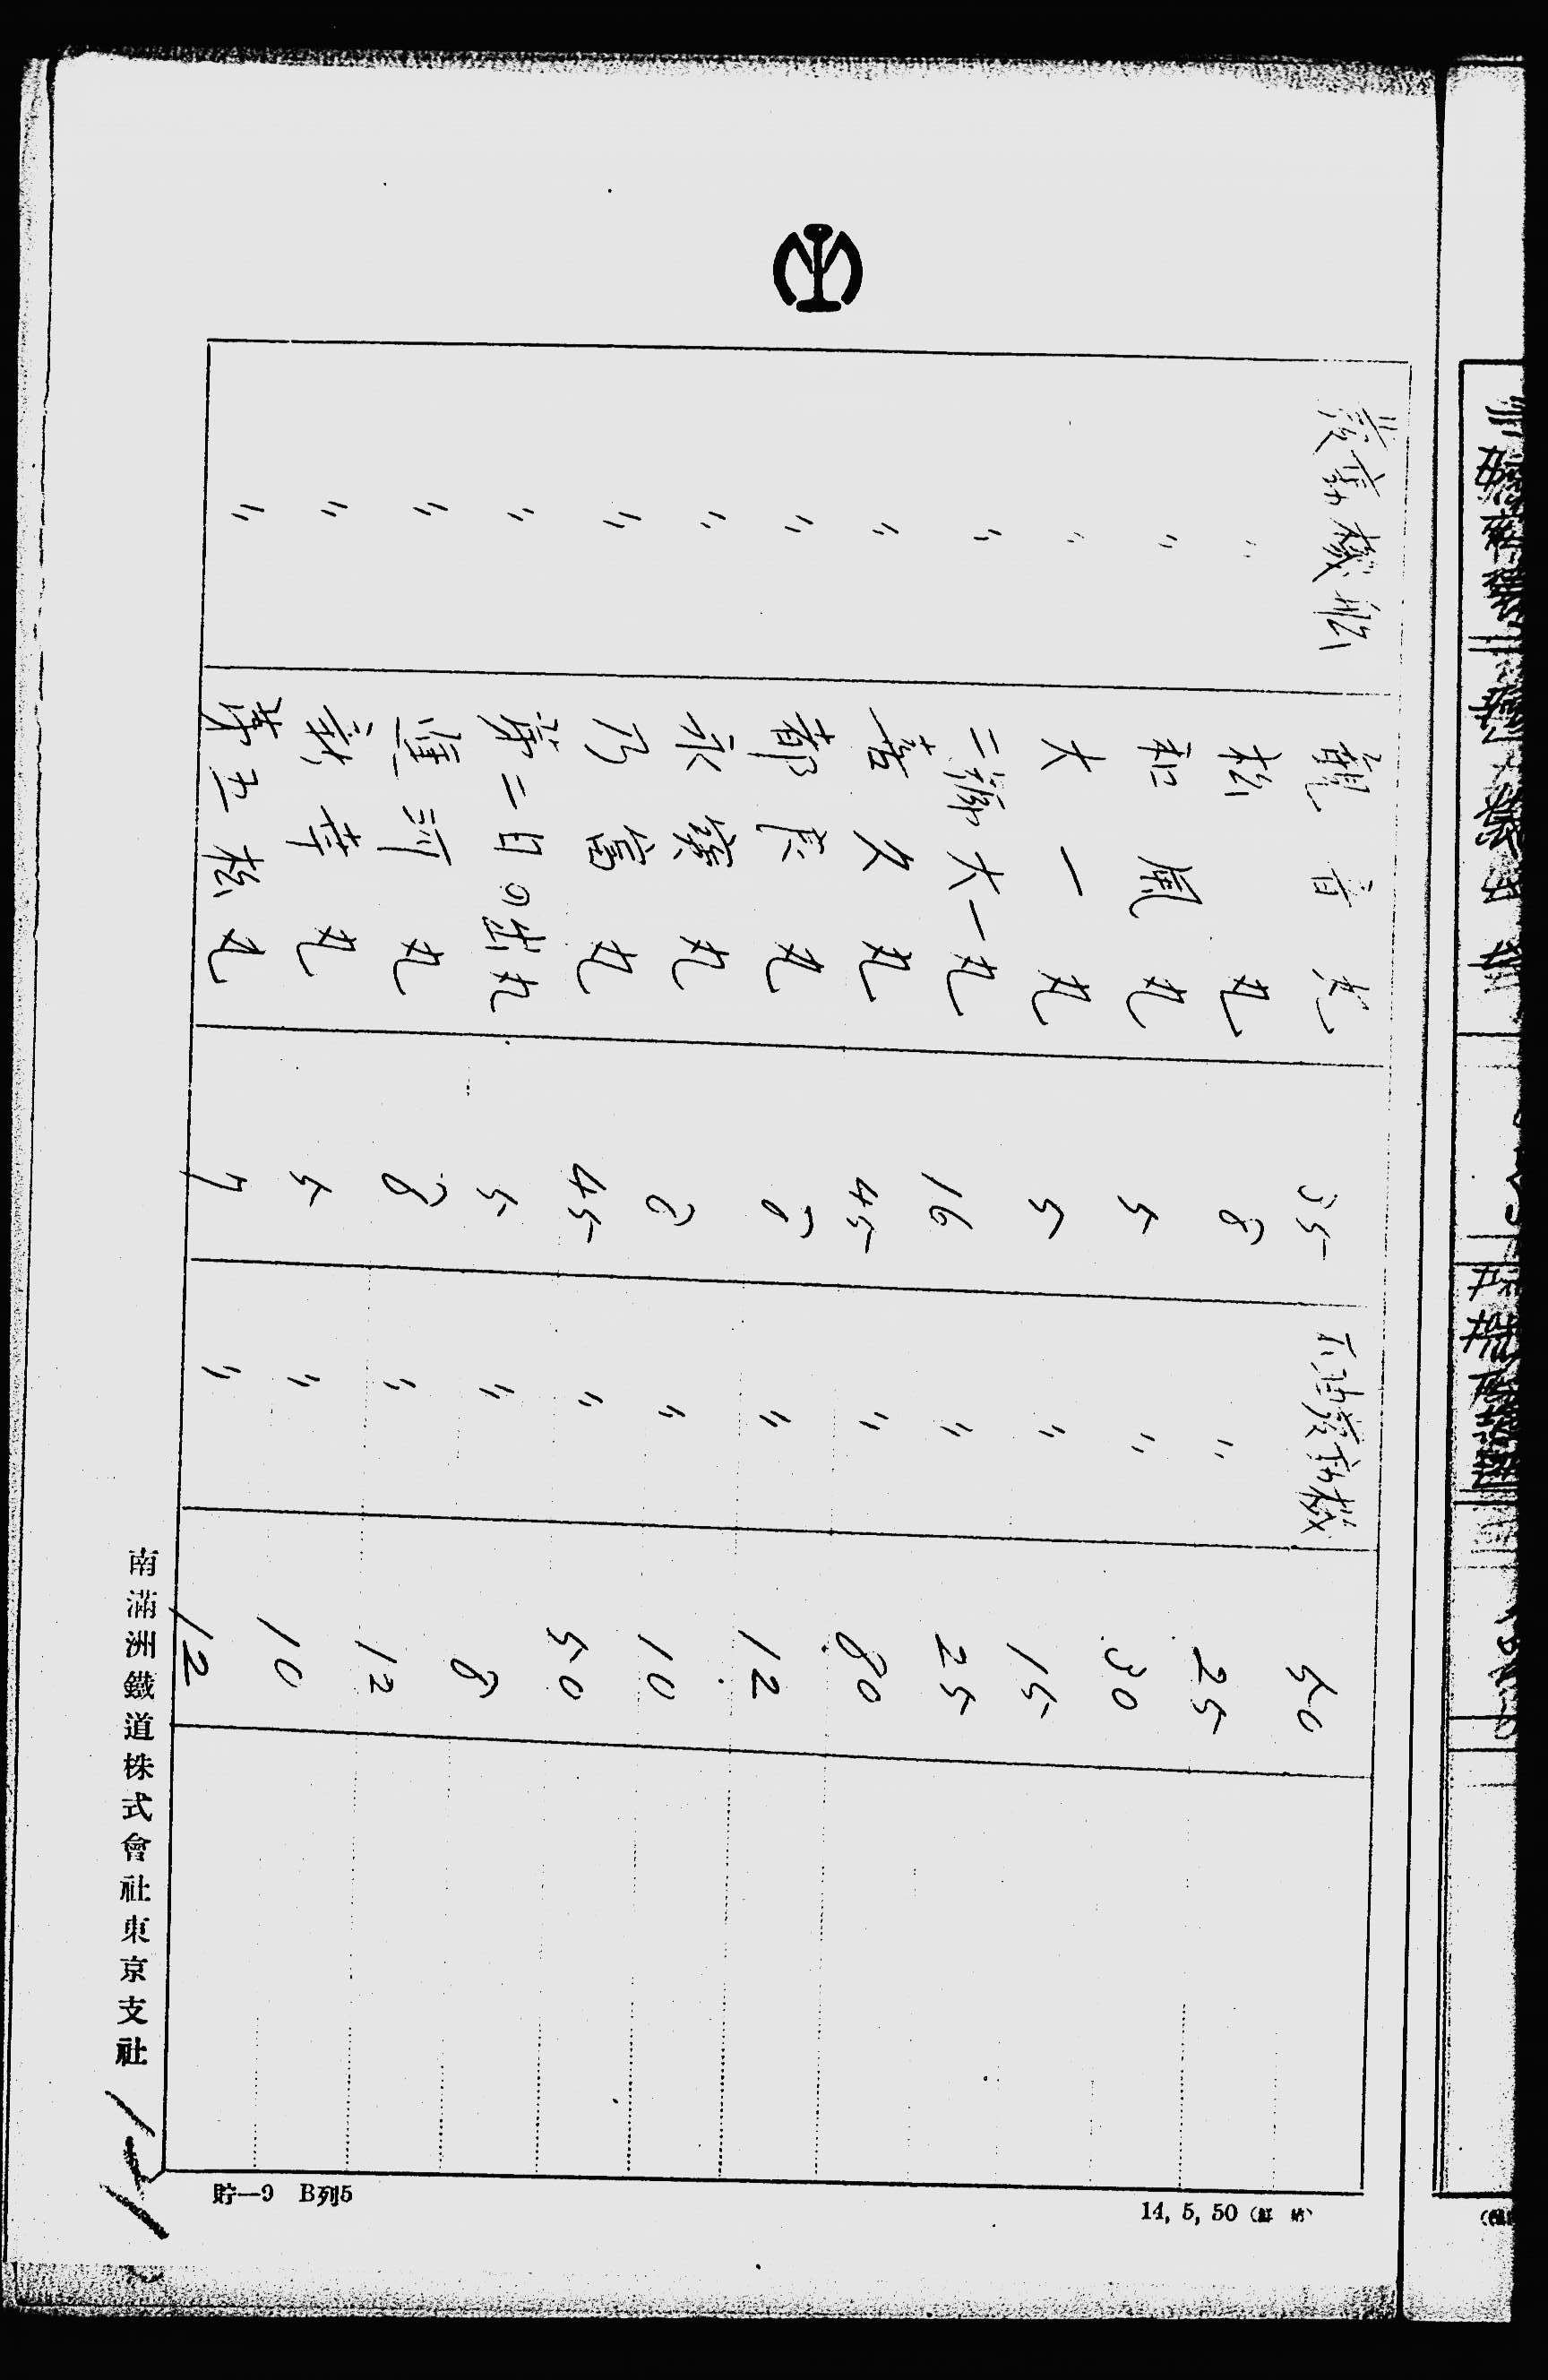 發動機船 觀音丸 35 石油發動機 50
〃 松丸 8 〃 25
〃 和風丸 5 〃 30
〃 大一丸 5 〃 15
〃 二號大一丸 16 〃 25
〃 喜久丸 45 〃 80
〃 都丸 8 〃 12
〃 永寶丸 8 〃 10
〃 乃富丸 45 〃 50
〃 第二日の出丸 5 〃 8
〃 運河丸 8 〃 12
〃 幸丸 5 〃 10
〃 第五松丸 7 〃 12
南滿洲鐵道株式會社東京支社
貯—9 B列5
14, 5, 50